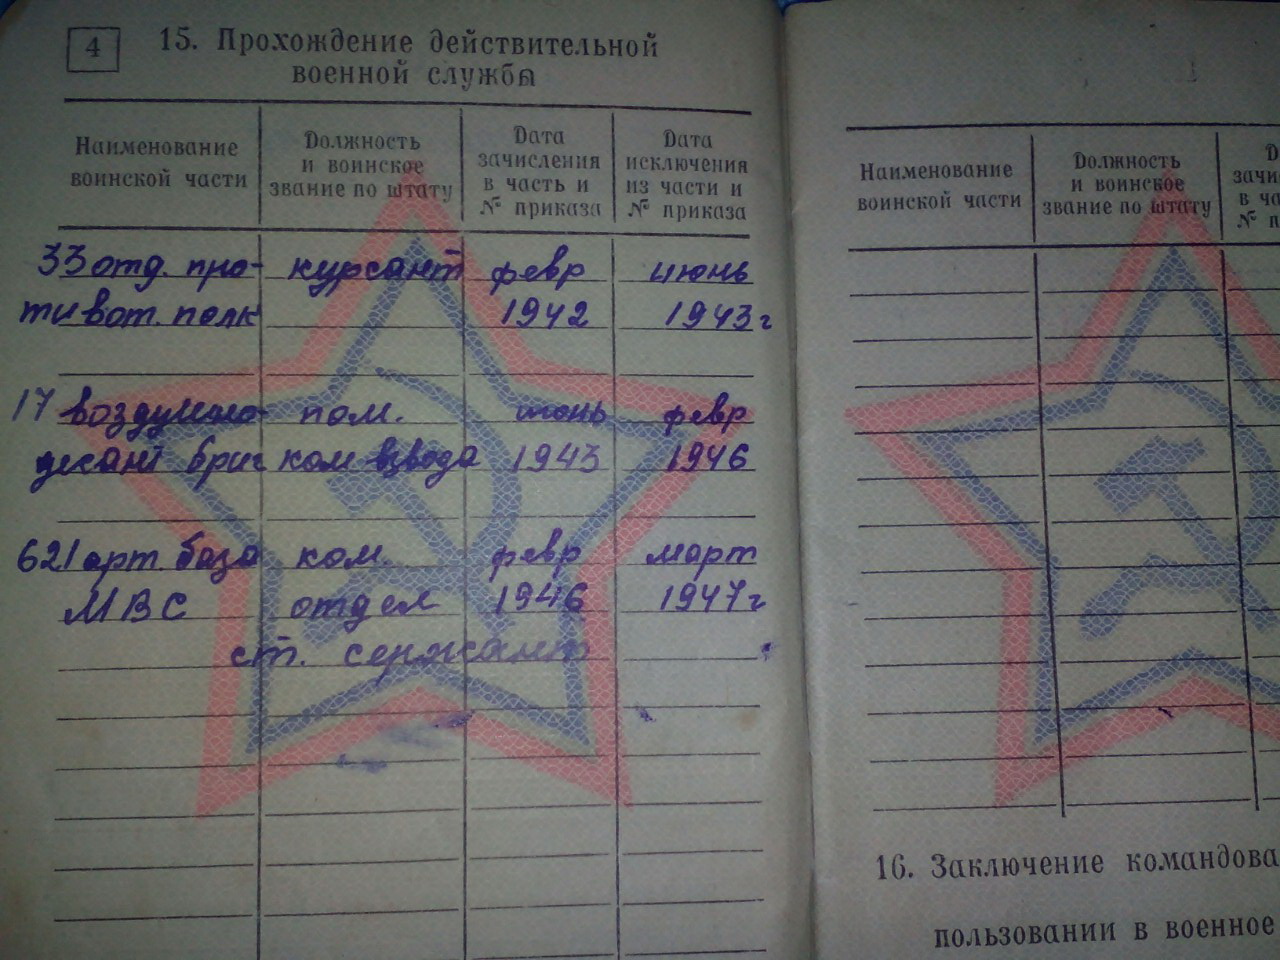 4
15. Прохождение действительной
военной службы
Наименование
воинской части
Должность
и воинское
звание по штату
Дата
зачисления
в часть и
№ приказа
Дата
исключения
из части и
№ приказа
33 отд. про- курсант февр июнь
тивот. полк 1942 1943 г
17 воздушно- пом. июнь февр
десант бриг ком взвода 1943 1946
621 арт. база ком. февр март
МВС отдел 1946 1947 г
ст. сержант
Наименование
воинской части
Должность
и воинское
звание по штату
Д
зачис
в ча
№ п
16. Заключение командова
пользовании в военное